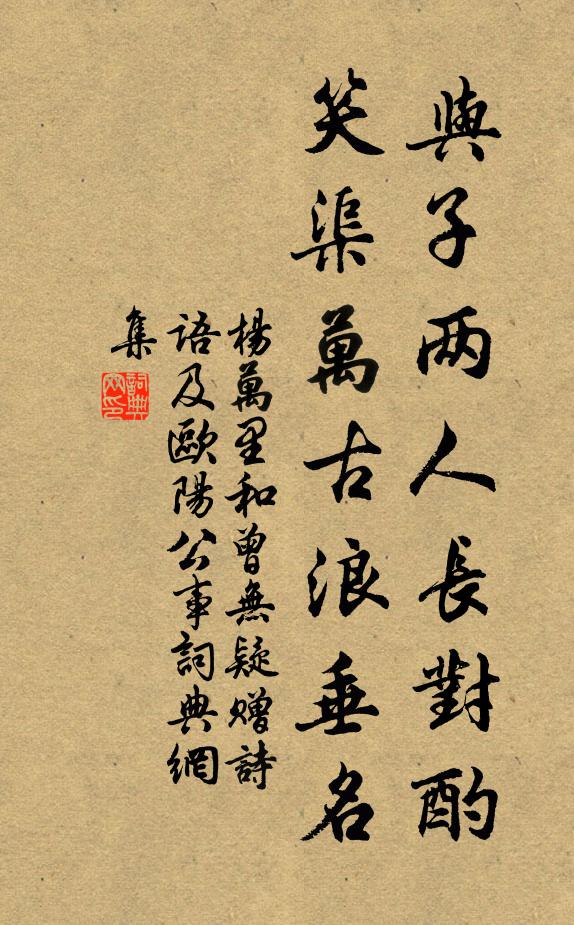 與子两人長對酌
笑渠萬古浪垂名
楊萬里和曾無疑贈詩
語及歐陽公事詞典網
集
詞典